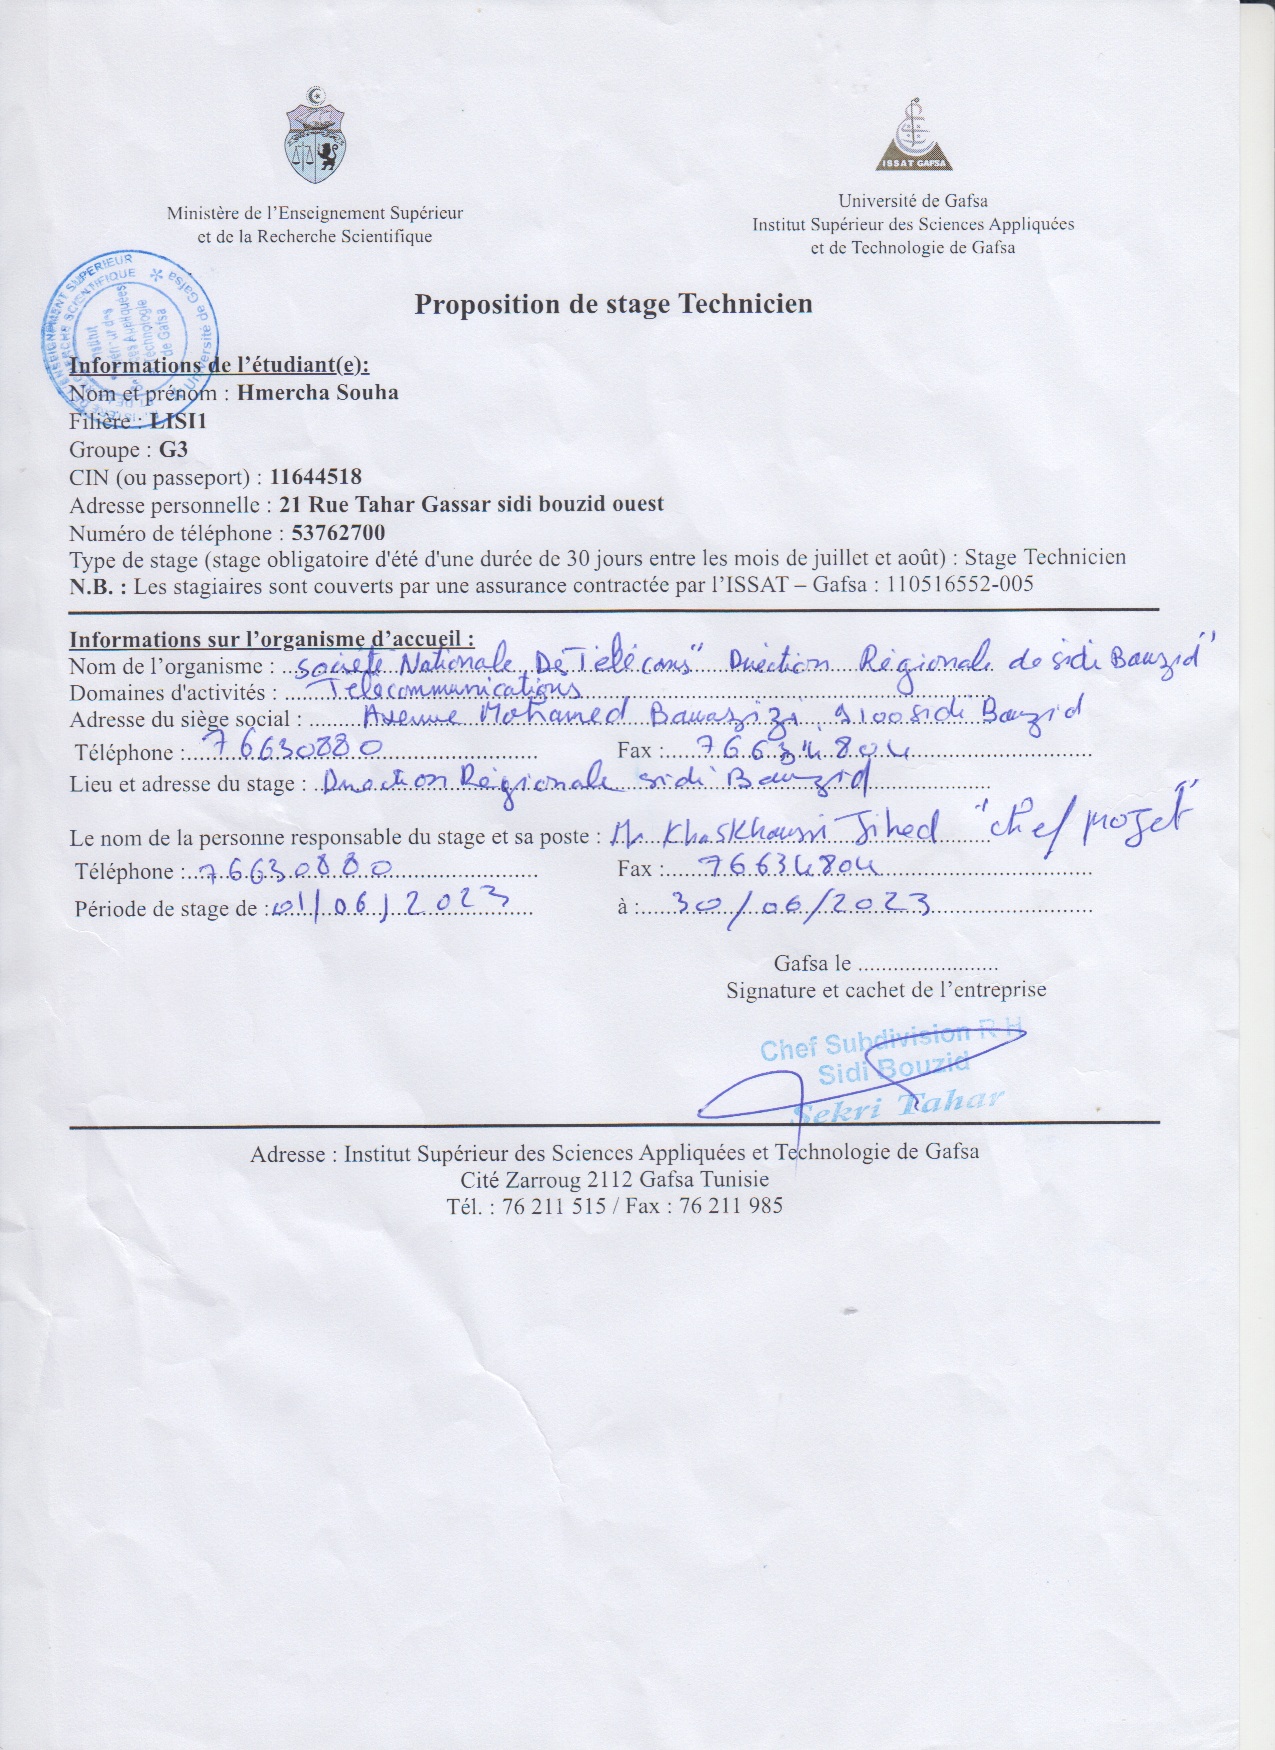 ISSAT GAFSA
Ministère de l'Enseignement Supérieur
et de la Recherche Scientifique
Université de Gafsa
Institut Supérieur des Sciences Appliquées
et de Technologie de Gafsa
Proposition de stage Technicien
Informations de l'étudiant(e):
Nom et prénom : Hmercha Souha
Filière : LISI1
Groupe : G3
CIN (ou passeport) : 11644518
Adresse personnelle : 21 Rue Tahar Gassar sidi bouzid ouest
Numéro de téléphone : 53762700
Type de stage (stage obligatoire d'été d'une durée de 30 jours entre les mois de juillet et août) : Stage Technicien
N.B. : Les stagiaires sont couverts par une assurance contractée par l'ISSAT – Gafsa : 110516552-005
Informations sur l'organisme d'accueil :
Nom de l'organisme : Société Nationale De Télécoms" Direction Régionale de sidi Bouzid"
Domaines d'activités : Télécommunications
Adresse du siège social : Avenue Mohamed Bouazizi, 9100 sidi Bouzid
Téléphone : 76630880 Fax : 76634804
Lieu et adresse du stage : Direction Régionale sidi Bouzid
Le nom de la personne responsable du stage et sa poste : Mr Khaskhoussi Jihed "chef projet"
Téléphone : 76630880 Fax : 76634804
Période de stage de : 01/06/2023 à : 30/06/2023
Gafsa le ........................
Signature et cachet de l'entreprise
Chef Subdivision R H
Sidi Bouzid
Sekri Tahar
Adresse : Institut Supérieur des Sciences Appliquées et Technologie de Gafsa
Cité Zarroug 2112 Gafsa Tunisie
Tél. : 76 211 515 / Fax : 76 211 985